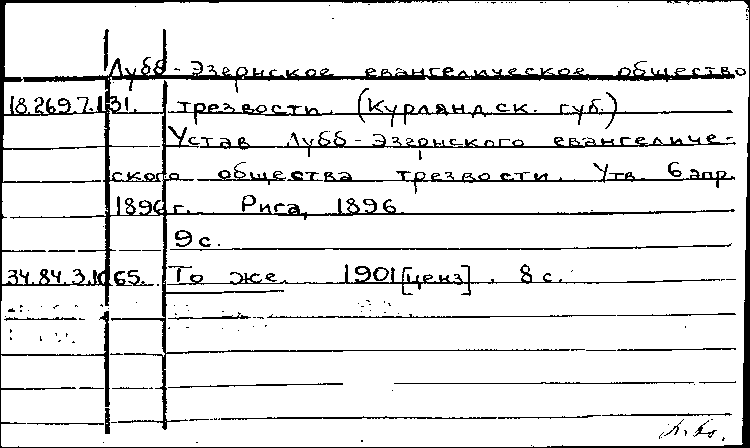 Лубб-Эзернское евангелическое общество
18.269.7.131. трезвости. (Курляндск. губ.)
Устав Лубб-Эзернского евангеличе-
ского общества трезвости. Утв. 6 апр.
1896 г. Рига, 1896.
9 с.
34.84.3.1065. То же. 1901 [ценз]. 8 с.